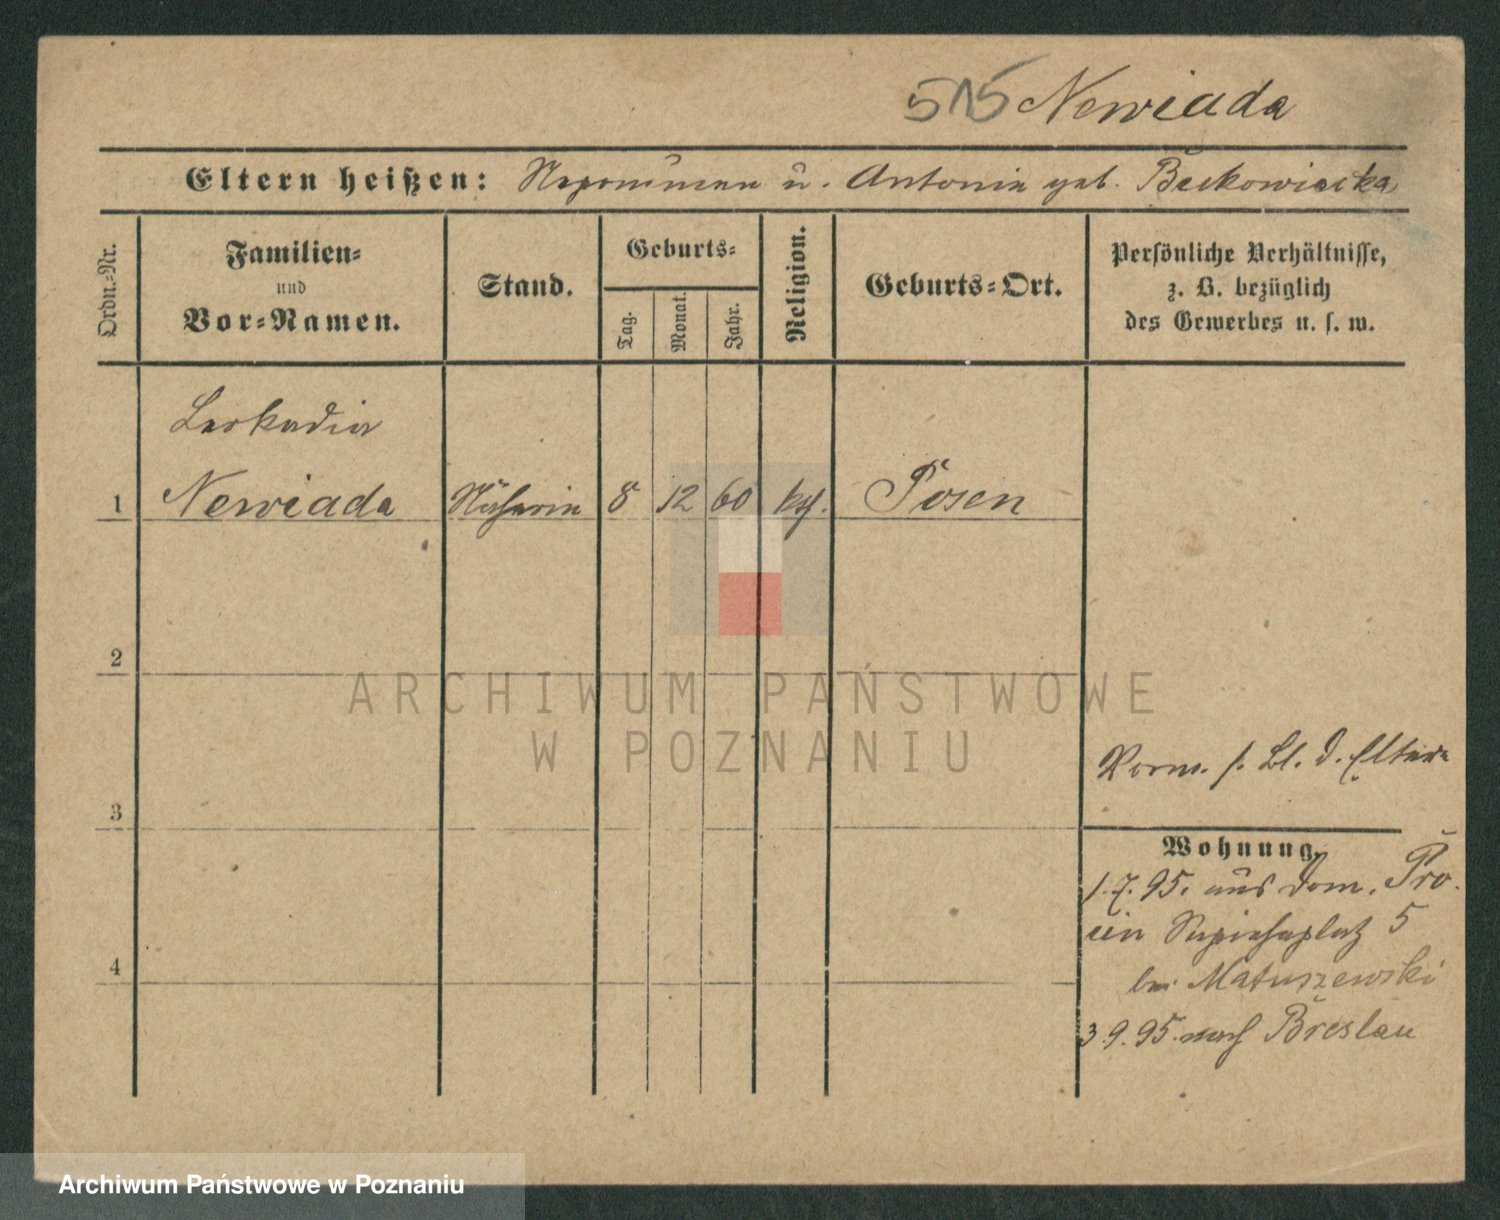 515 Newiada
Eltern heißen: Nepomucen u. Antonia geb. Bukowiecka
Ordn.-Nr.
Familien-
und
Vor-Namen.
Stand.
Geburts-
Tag.
Monat.
Jahr.
Religion.
Geburts-Ort.
Persönliche Verhältnisse,
z. B. bezüglich
des Gewerbes u. s. w.
Leokadia
1 Newiada Näherin 8 12 60 kth. Posen
2
ARCHIWUM PAŃSTWOWE
W POZNANIU
Vorm. s. Bl. d. Eltern
3
Wohnung.
1.7.95. aus Dom. Pro
Sapiehaplatz 5
4
bei Matuszewski
3.9.95. nach Breslau
Archiwum Państwowe w Poznaniu